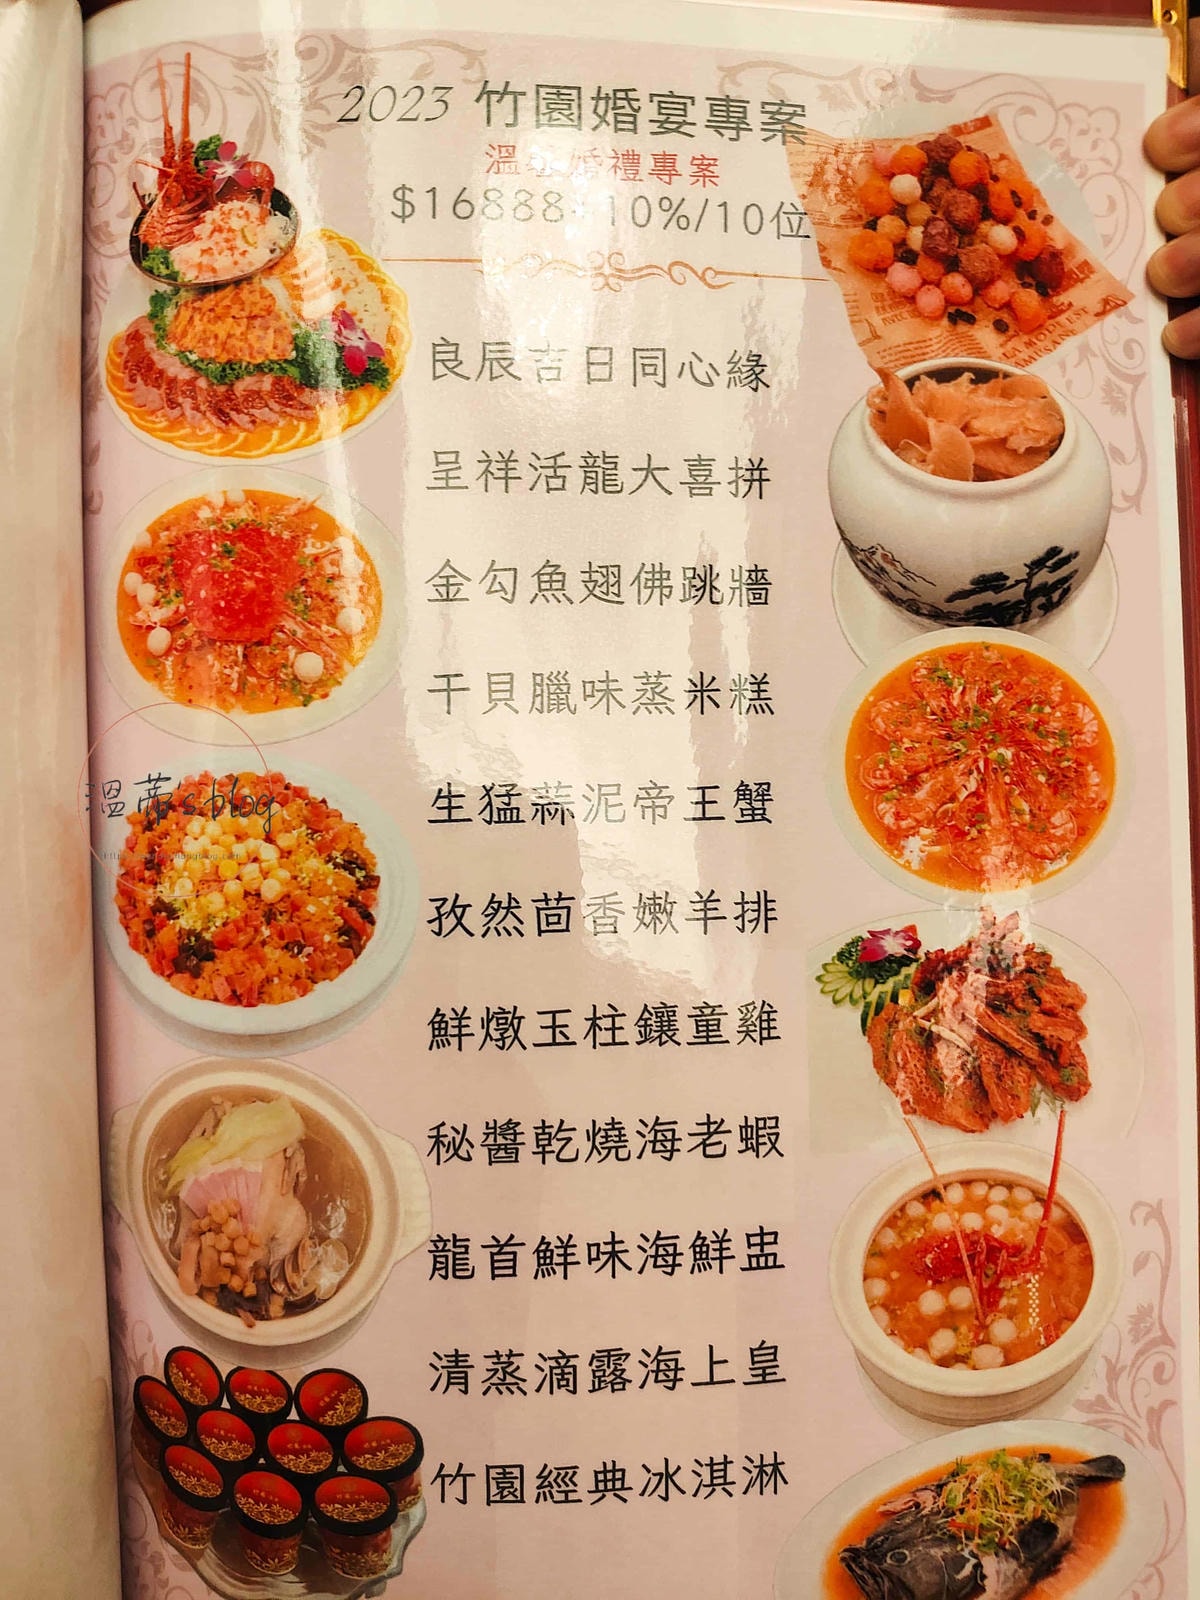 2023 竹園婚宴專案
溫 婚禮專案
$16888+10%/10位
良辰吉日同心緣
呈祥活龍大喜拼
金勾魚翅佛跳牆
干貝臘味蒸米糕
生猛蒜泥帝王蟹
孜然茴香嫩羊排
鮮燉玉柱鑲童雞
秘醬乾燒海老蝦
龍首鮮味海鮮盅
清蒸滴露海上皇
竹園經典冰淇淋
溫蒂's blog